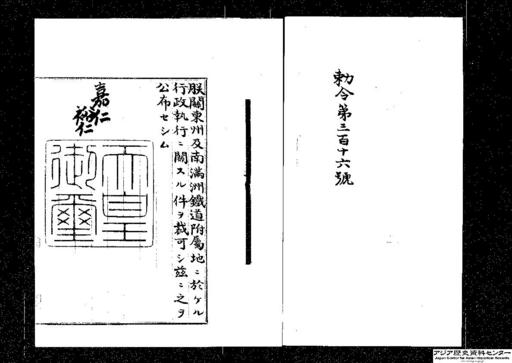 勅令第三百十六號
朕關東州及南滿洲鐵道附屬地ニ於ケル
行政執行ニ關スル件ヲ裁可シ茲ニ之ヲ
公布セシム
嘉仁
裕仁
天皇御璽
アジア歴史資料センター
Japan Center for Asian Historical Records